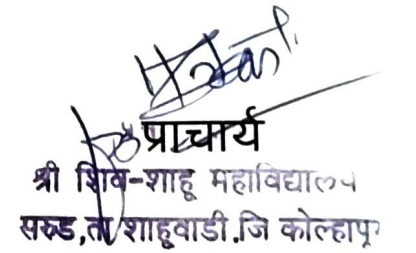 प्राचार्य
श्री शिव-शाहू महाविद्यालय
सरुड,ता शाहूवाडी.जि कोल्हापूर